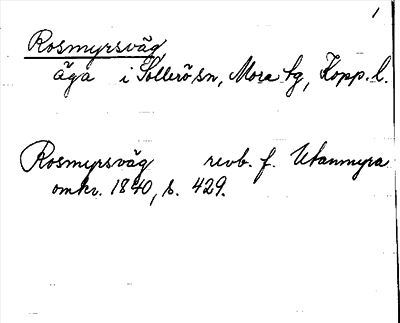 1
Rosmyrsväg
äga i Sollerö sn, Mora tg, Kopp. l.
Rosmyrsväg revb. f. Utanmyra
omkr. 1840, s. 429.